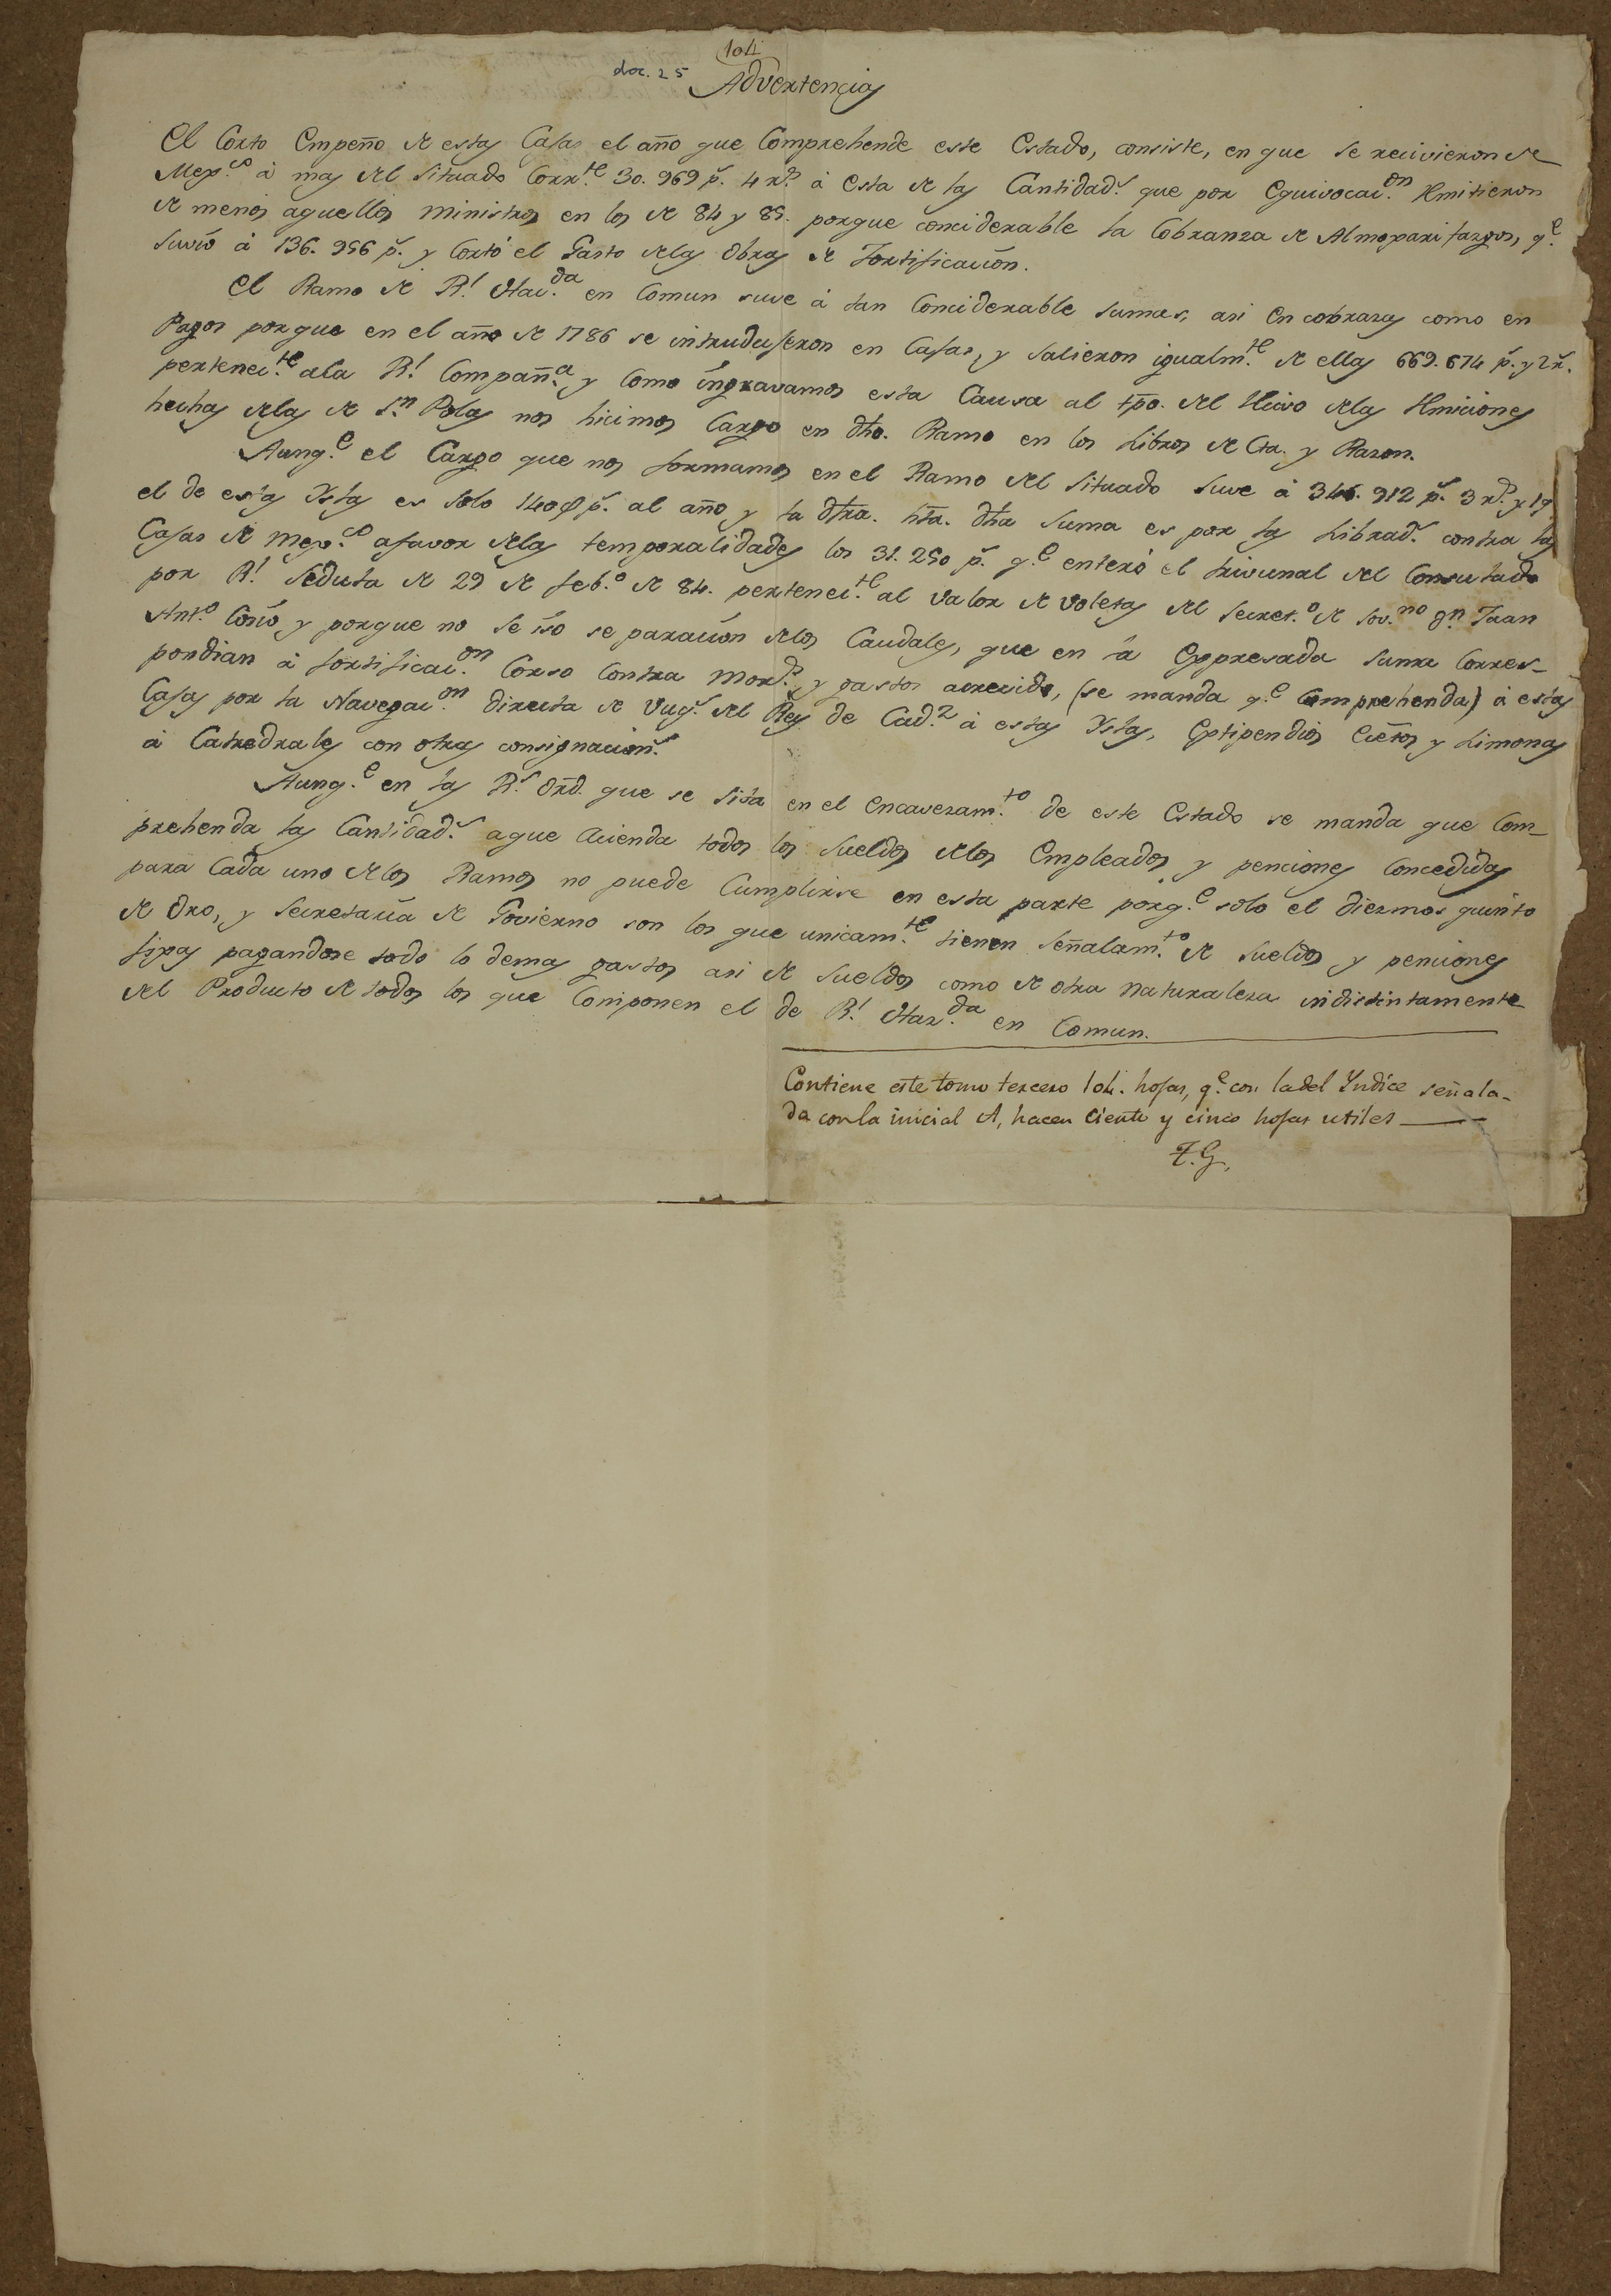 104
doc. 25
Advertencias
El Corto Empeño de estas Cajas el año que Comprehende este Estado, consiste, en que se recivieron de
Mex.co à mas del Situado Corr.te 30.969 p.s 4 r.s à esta de las Cantidad.s que por Equivocac.on Remitieron
de menos aquellos Ministros en los de 84 y 85. porque conciderable la Cobranza de Almoxarifazgos, q.e
suvió à 136.956 p.s y Cortó el Gasto delas Obras de Fortificacion.
El Ramo de R.l Hac.da en Comun suve à tan Conciderable sumas, asi en cobrazas como en
Pagos porque en el año de 1786 se introdujeron en Cajas, y salieron igualm.te de ellas 669.674 p.s y 2 r.s
pertenec.te ala R.l Compañ.a y Como ingravamos esta Causa al tpo. del Recivo delas Remiciones
hechas delas de S.n Polas nos hicimos Cargo en dho. Ramo en los Libros de Cta. y Razon.
Aunq.e el Cargo que nos formamos en el Ramo del Situado suve à 346.912 p.s 3 r.s y 19
el de esta Ysla es solo 140@ p.s al año y la dtra. hta. dha suma es por las Librad.s contra las
Cajas de Mex.co afavor delas temporalidades los 31.250 p.s q.e enteró el trivunal del Consulado
por R.l Sedula de 29 de feb.o de 84. pertenec.te al Valor de Voletas del Secret.o de Gov.no D.n Juan
Ant.o Cosio y porque no se iso separacion delos Caudales, que en la Expresada Suma Corres-
pondian à fortificac.on Corso Contra Mor.s y gastos acrecido, (se manda q.e Comprehenda) à estas
Cajas por la Navegac.on directa de Vuq.s del Rey de Cad.z à estas Yslas, Extipendios Ecctos y Limonas
à Catredrales con otras consignacion.s
Aunq.e en las R.s Ord. que se sita en el Encavezam.to de este Estado se manda que Com-
prehenda las Cantidad.s aque Acienda todos los Sueldos delos Empleados, y penciones Concedidas
para Cada uno delos Ramos no puede Cumplirse en esta parte porq.e solo el diezmos quinto
de Oro, y Secretaria de Govierno son los que unicam.te tienen Señalam.to de Sueldos y penciones
fixas pagandose todo lo demas gastos asi de Sueldos como de otra naturaleza indistintamente
del Producto de todos los que Componen el de R.l Haz.da en Comun.
Contiene este tomo tercero 104. hojas, q.e con la del Yndice señala-
da con la inicial A, hacen ciento y cinco hojas utiles
F.G.